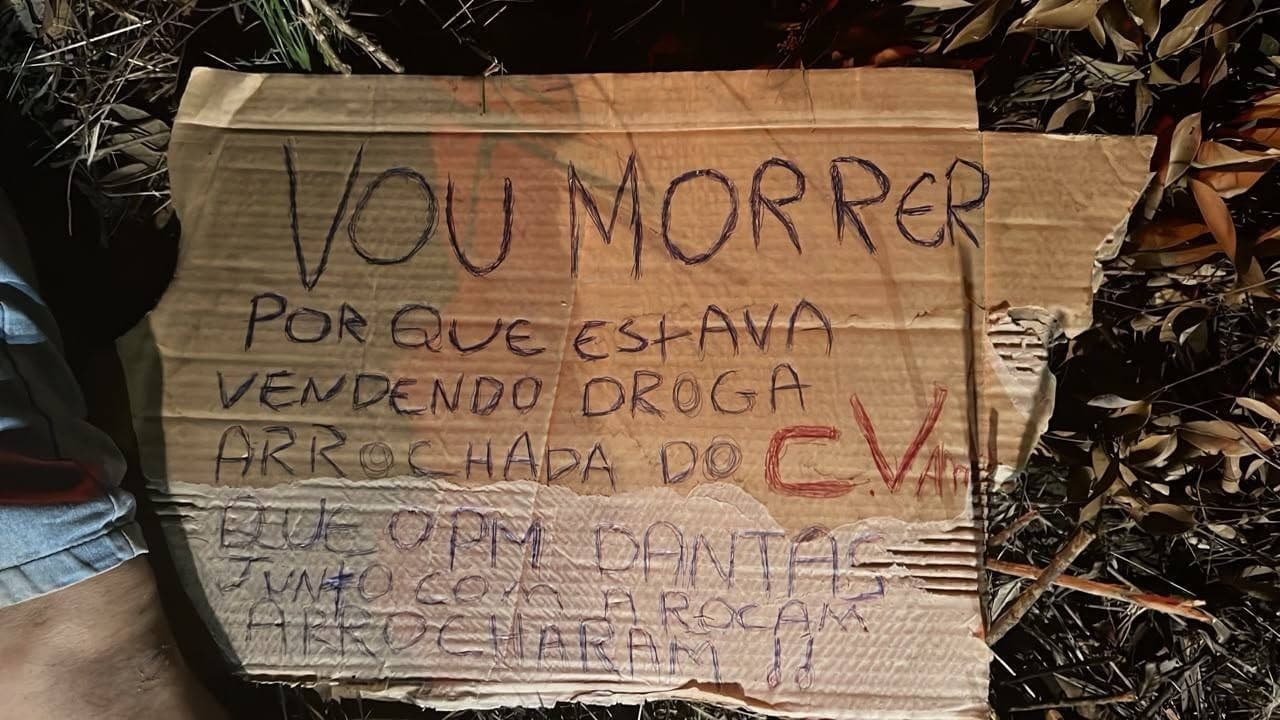 VOU MORRER
POR QUE ESTAVA
VENDENDO DROGA
ARROCHADA DO C.VAM
QUE O PM DANTAS
JUNTO COM A ROCAM
ARROCHARAM !!